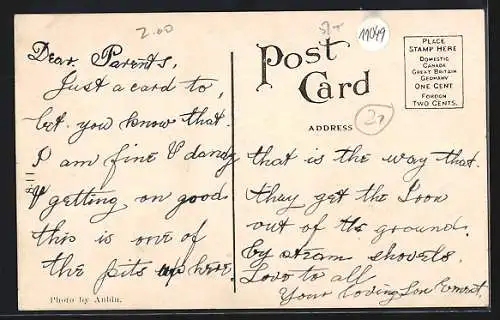 2.00
11049
Dear Parents,
Just a card to,
let you know that
I am fine & dandy
& getting on good
this is one of
the pits up here.
Photo by Aubin.
Post
Card
ADDRESS
27
PLACE
STAMP HERE
DOMESTIC
CANADA
GREAT BRITAIN
GERMANY
ONE CENT
FOREIGN
TWO CENTS.
that is the way that
thay get the Iron
out of the ground.
by steam shovels.
Love to all
Your loving Son